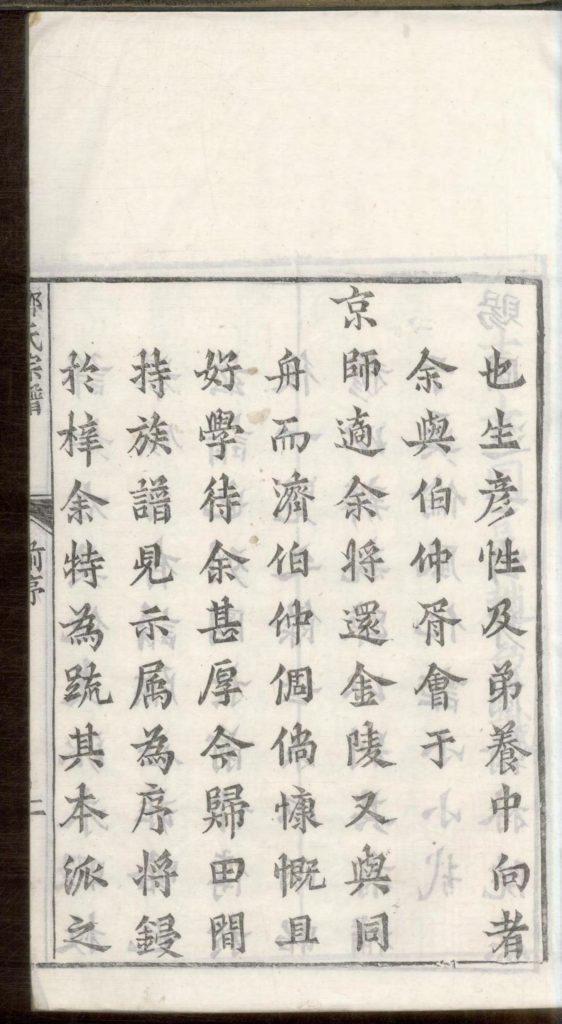 也生彦性及弟養中向者
余與伯仲胥會于
京師適余将還金陵又與同
舟而濟伯仲倜倘慷慨且
好學待余甚厚今歸田間
持族譜見示属為序将鋟
於梓余特為䟽其本派之
氏宗譜
前序
二